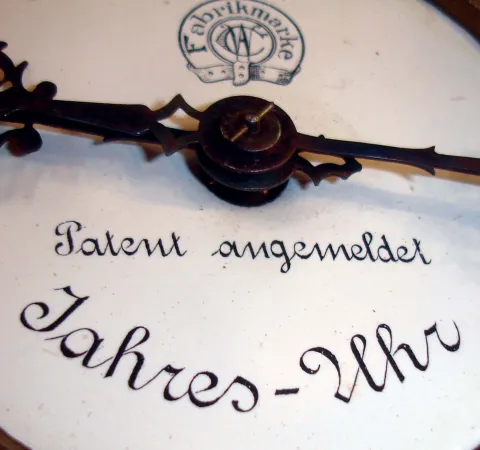 Fabrikmarke
Patent angemeldet
Jahres-Uhr